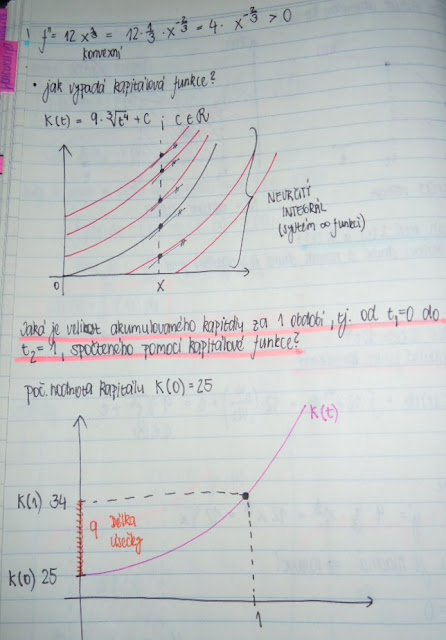 ! f'' = 12 x^⅓ = 12 · 1/3 · x^(-2/3) = 4 · x^(-2/3) > 0
konvexní
• jak vypadá kapitálová funkce?
K(t) = 9 · ∛t⁴ + C ; C ∈ R
NEURČITÝ
INTEGRÁL
(systém ∞ funkcí)
0
X
Jaká je velikost akumulovaného kapitálu za 1 období, tj. od t₁=0 do
t₂= 1, spočteného pomocí kapitálové funkce?
poč. hodnota kapitálu K(0) = 25
K(t)
K(1) 34
9 Délka
úsečky
K(0) 25
1